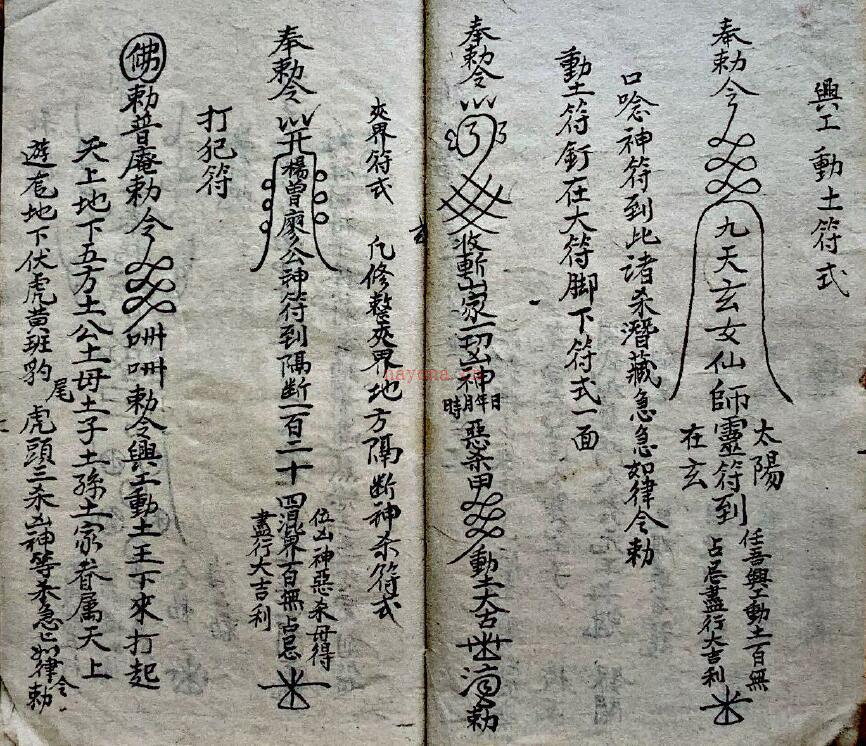 興工動土符式
奉勅令九天玄女仙師靈符到
太陽
在玄
任吾興工動土百無
占忌盡行大吉利
口唸神符到此諸杀潛藏急急如律令勅
動土符釘在大符脚下符式一面
奉勅令
收斬山家一切凶神
年月日時
惡杀甲
動土大吉
勅
夾界符式 凡修整夾界地方隔断神杀符式
奉勅令
楊曾廖公神符到隔断一百二十四
位凶神惡杀毋得
混界百無占忌
盡行大吉利
打犯符
佛勅普庵勅令
勅令興工動土王下來打起
天上地下五方土公土母土子土孫土家眷属天上
遊尾地下伏虎黃班豹尾虎頭三杀凶神等杀急急如律令勅
nayona.cn